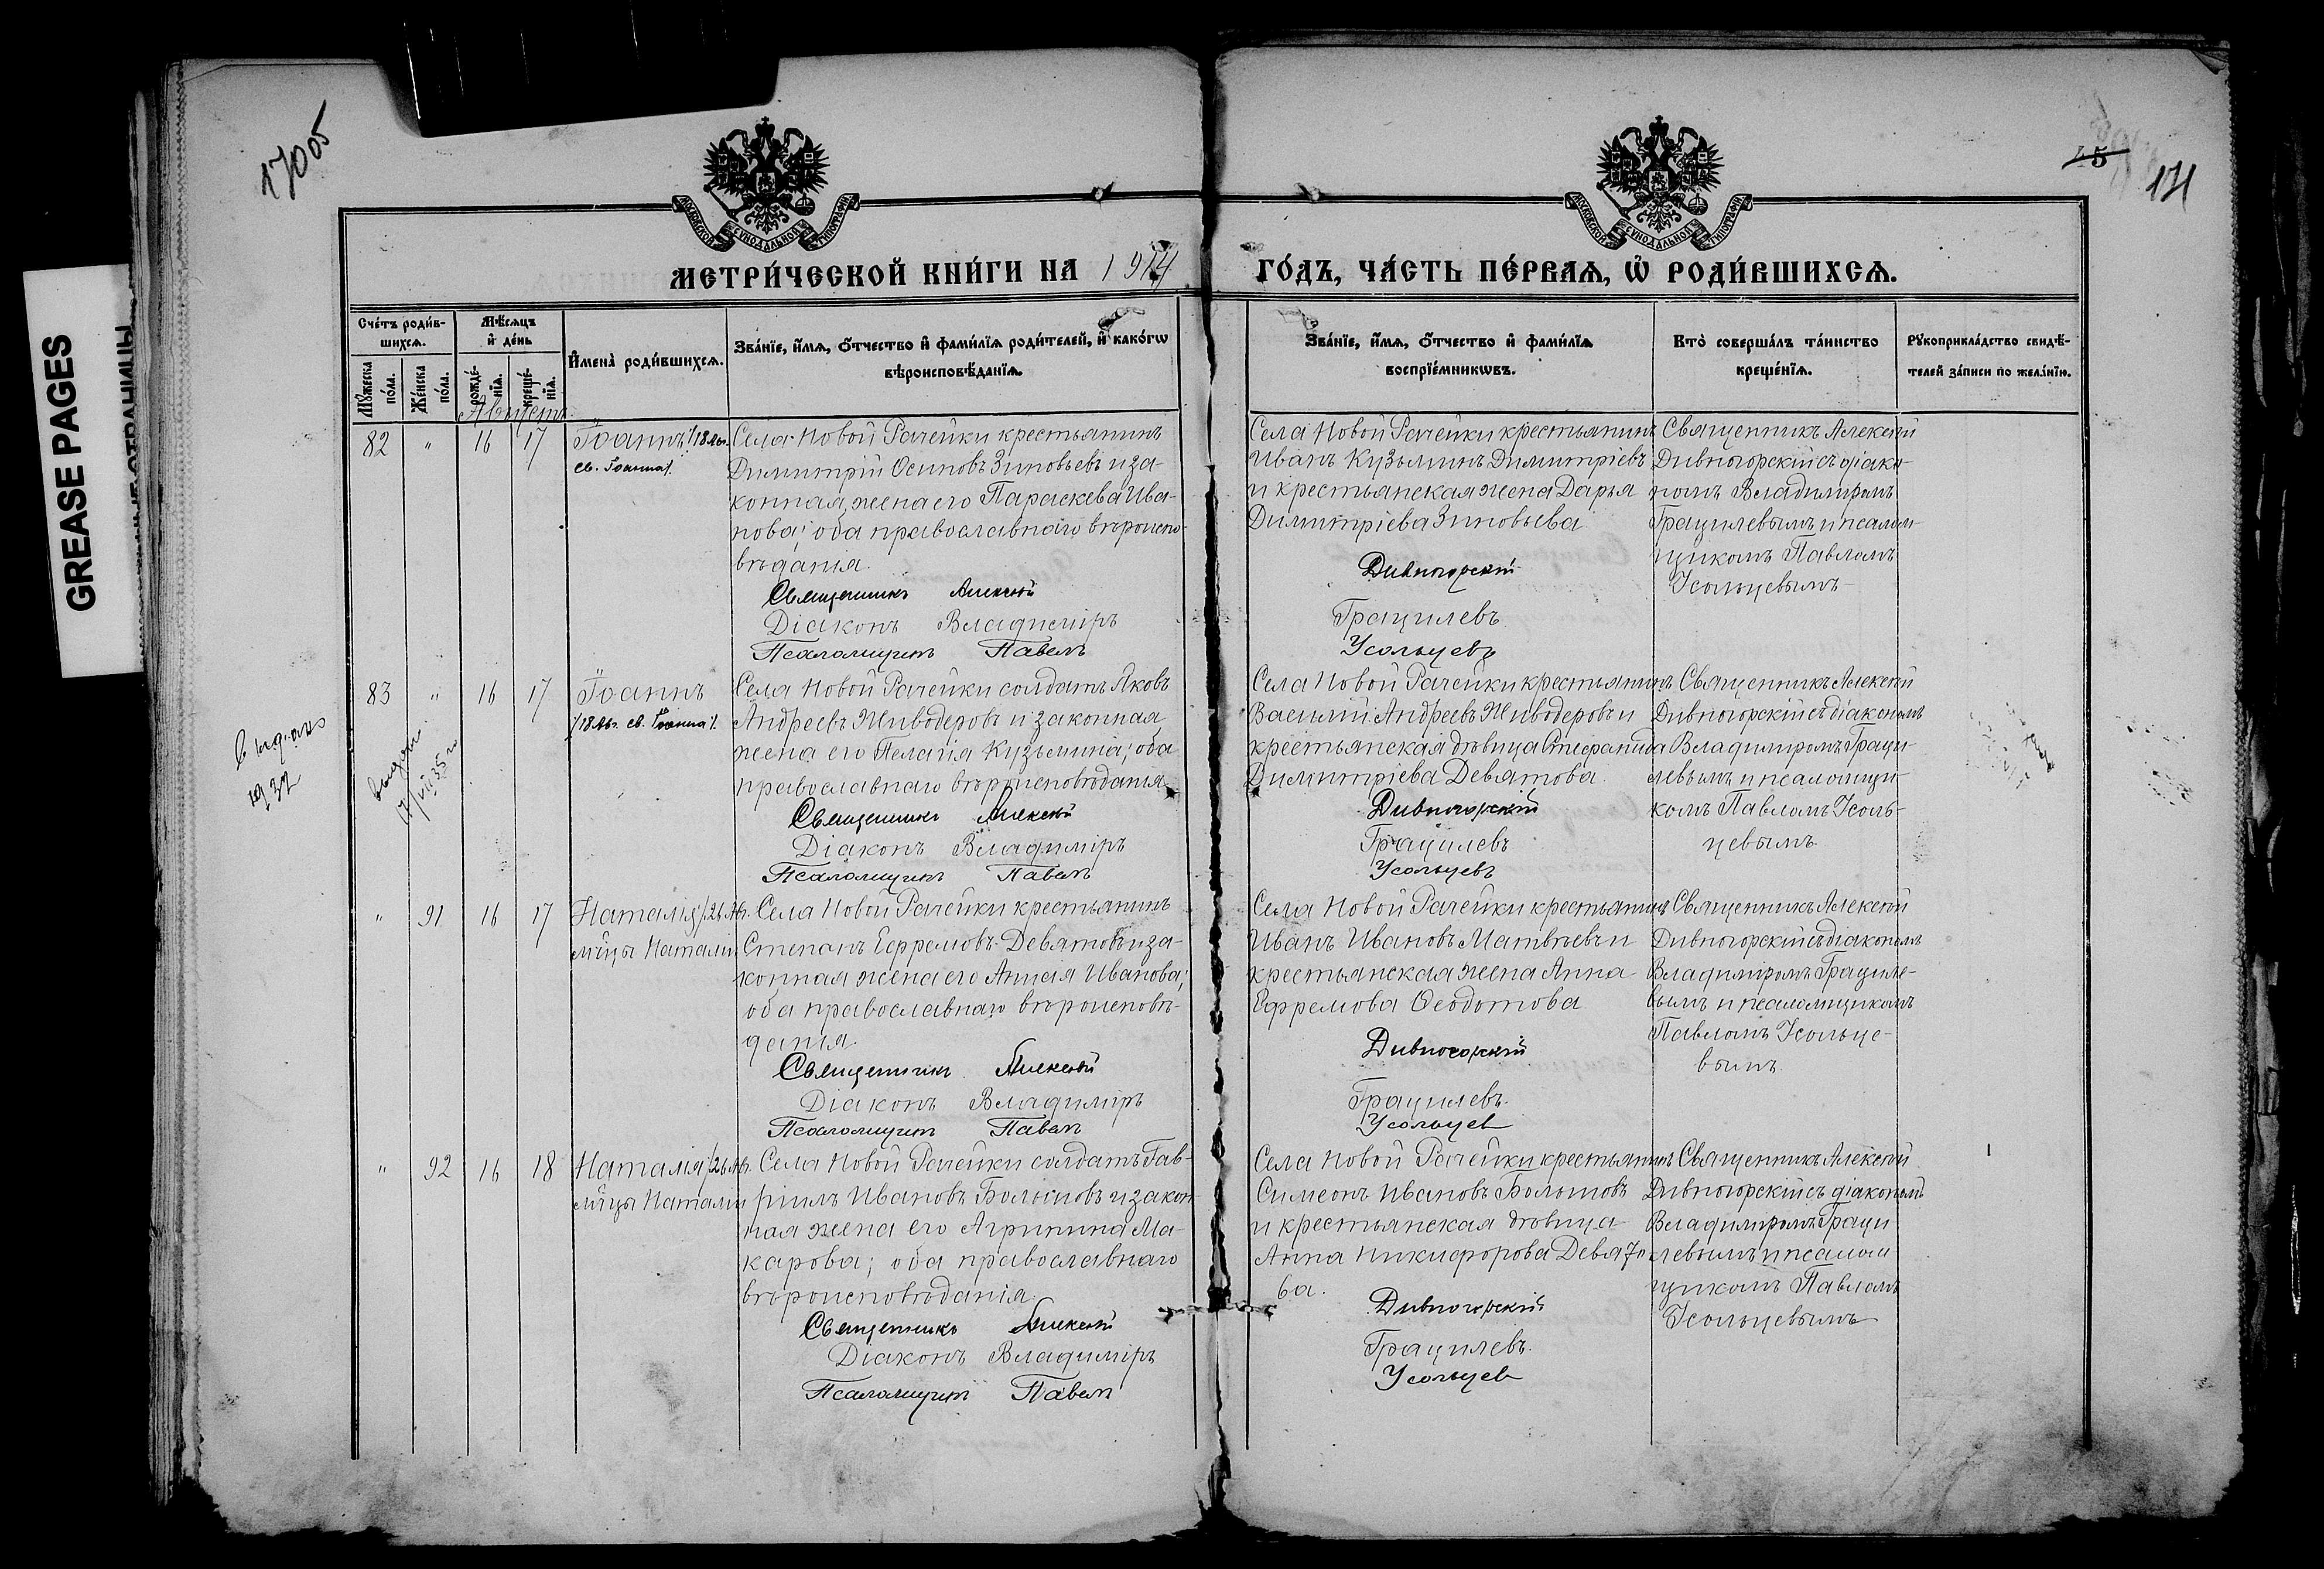 GREASE PAGES
17005
45
171
МОСКОВСКОЙ СѴНОДАЛЬНОЙ ТИПОГРАФІИ
МОСКОВСКОЙ СѴНОДАЛЬНОЙ ТИПОГРАФІИ
МЕТРИ́ЧЕСКОЙ КНИ́ГИ НА 1914
ГО́ДЪ, ЧА́СТЬ ПЕ́РВАѦ, Ѽ РОДИ́ВШИХСѦ.
Сче́тъ роди́в-
шихсѧ.
Мꙋ́жеска по́ла.
Же́нска по́ла.
Мѣ́сѧцъ и҆ де́нь
рожде́-нїѧ.
креще́-нїѧ.
И҆мена̀ роди́вшихсѧ.
Зва́нїе, и҆́мѧ, ѻ҆́тчество и҆ фами́лїѧ роди́телей, и҆ како́гѡ
вѣроисповѣ́данїѧ.
Зва́нїе, и҆́мѧ, ѻ҆́тчество и҆ фами́лїѧ
воспрїе́мникѡвъ.
Кто̀ соверша́лъ та́инство
креще́нїѧ.
Рꙋкоприкла́дство свидѣ́-
телей за́писи по жела́нїю.
Августъ
82 " 16 17
Іоаннъ /18 Авг.
св. Іоанна/.
Села Новой Рачейки крестьянинъ
Димитрій Осиповъ Зиновьевъ и за-
конная жена его Параскева Ива-
нова; оба православнаго вѣроиспо-
вѣданія.
Священникъ Алексѣй
Діаконъ Владиміръ
Псаломщикъ Павелъ
Села Новой Рачейки крестьянинъ
Иванъ Кузьминъ Димитріевъ
и крестьянская жена Дарья
Димитріева Зиновьева
Дивногорскій
Грацилевъ
Усольцевъ
Священникъ Алексѣй
Дивногорскій съ діако-
номъ Владиміромъ
Грацилевымъ и псалом-
щикомъ Павломъ
Усольцевымъ
83 " 16 17
Іоаннъ
/18 Авг. св. Іоанна/.
выдано
1932
выдан
Села Новой Рачейки солдатъ Яковъ
Андреевъ Живодеровъ и законная
жена его Пелагія Кузьмина; оба
православнаго вѣроисповѣданія.
Священникъ Алексѣй
Діаконъ Владиміръ
Псаломщикъ Павелъ
Села Новой Рачейки крестьянинъ
Василій Андреевъ Живодеровъ и
крестьянская дѣвица Стефанида
Димитріева Девятова.
Дивногорскій
Грацилевъ
Усольцевъ
Священникъ Алексѣй
Дивногорскій съ діакономъ
Владиміромъ Граци-
левымъ и псаломщи-
комъ Павломъ Усоль-
цевымъ.
" 91 16 17
Наталія /26 Авг.
м҃-цы Наталіи
Села Новой Рачейки крестьянинъ
Степанъ Ефремовъ Девятовъ и за-
конная жена его Анисія Иванова;
оба православнаго вѣроисповѣ-
данія.
Священникъ Алексѣй
Діаконъ Владиміръ
Псаломщикъ Павелъ
Села Новой Рачейки крестьянинъ
Иванъ Ивановъ Матвѣевъ и
крестьянская жена Анна
Ефремова Ѳеодотова
Дивногорскій
Грацилевъ.
Усольцев
Священникъ Алексѣй
Дивногорскій съ діакономъ
Владиміромъ Грациле-
вымъ и псаломщикомъ
Павломъ Усольце-
вымъ.
" 92 16 18
Наталія /26 Авг.
м҃-цы Наталіи
Села Новой Рачейки солдатъ Гав-
ріилъ Ивановъ Болотовъ и закон
ная жена его Агрипина Ма-
карова; оба православнаго
вѣроисповѣданія.
Священникъ Алексѣй
Діаконъ Владиміръ
Псаломщикъ Павелъ
Села Новой Рачейки крестьянинъ
Симеонъ Ивановъ Болотовъ
и крестьянская дѣвица
Анна Никифорова Девято-
ва.
Дивногорскій
Грацилевъ.
Усольцев
Священникъ Алексѣй
Дивногорскій съ діакономъ
Владиміромъ Граци
левымъ и псалом
щикомъ Павломъ
Усольцевымъ